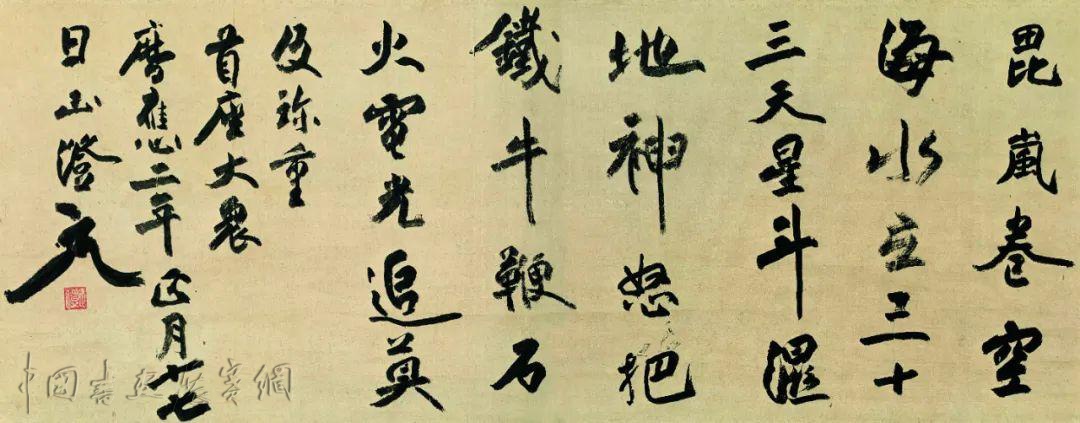 毘嵐巻空
海水立三十
三天星斗濕
地神怒把
鐵牛鞭石
火電光追莫
及珎重
首座大衆
曆應二年正月十七
日正澄
中國書法網